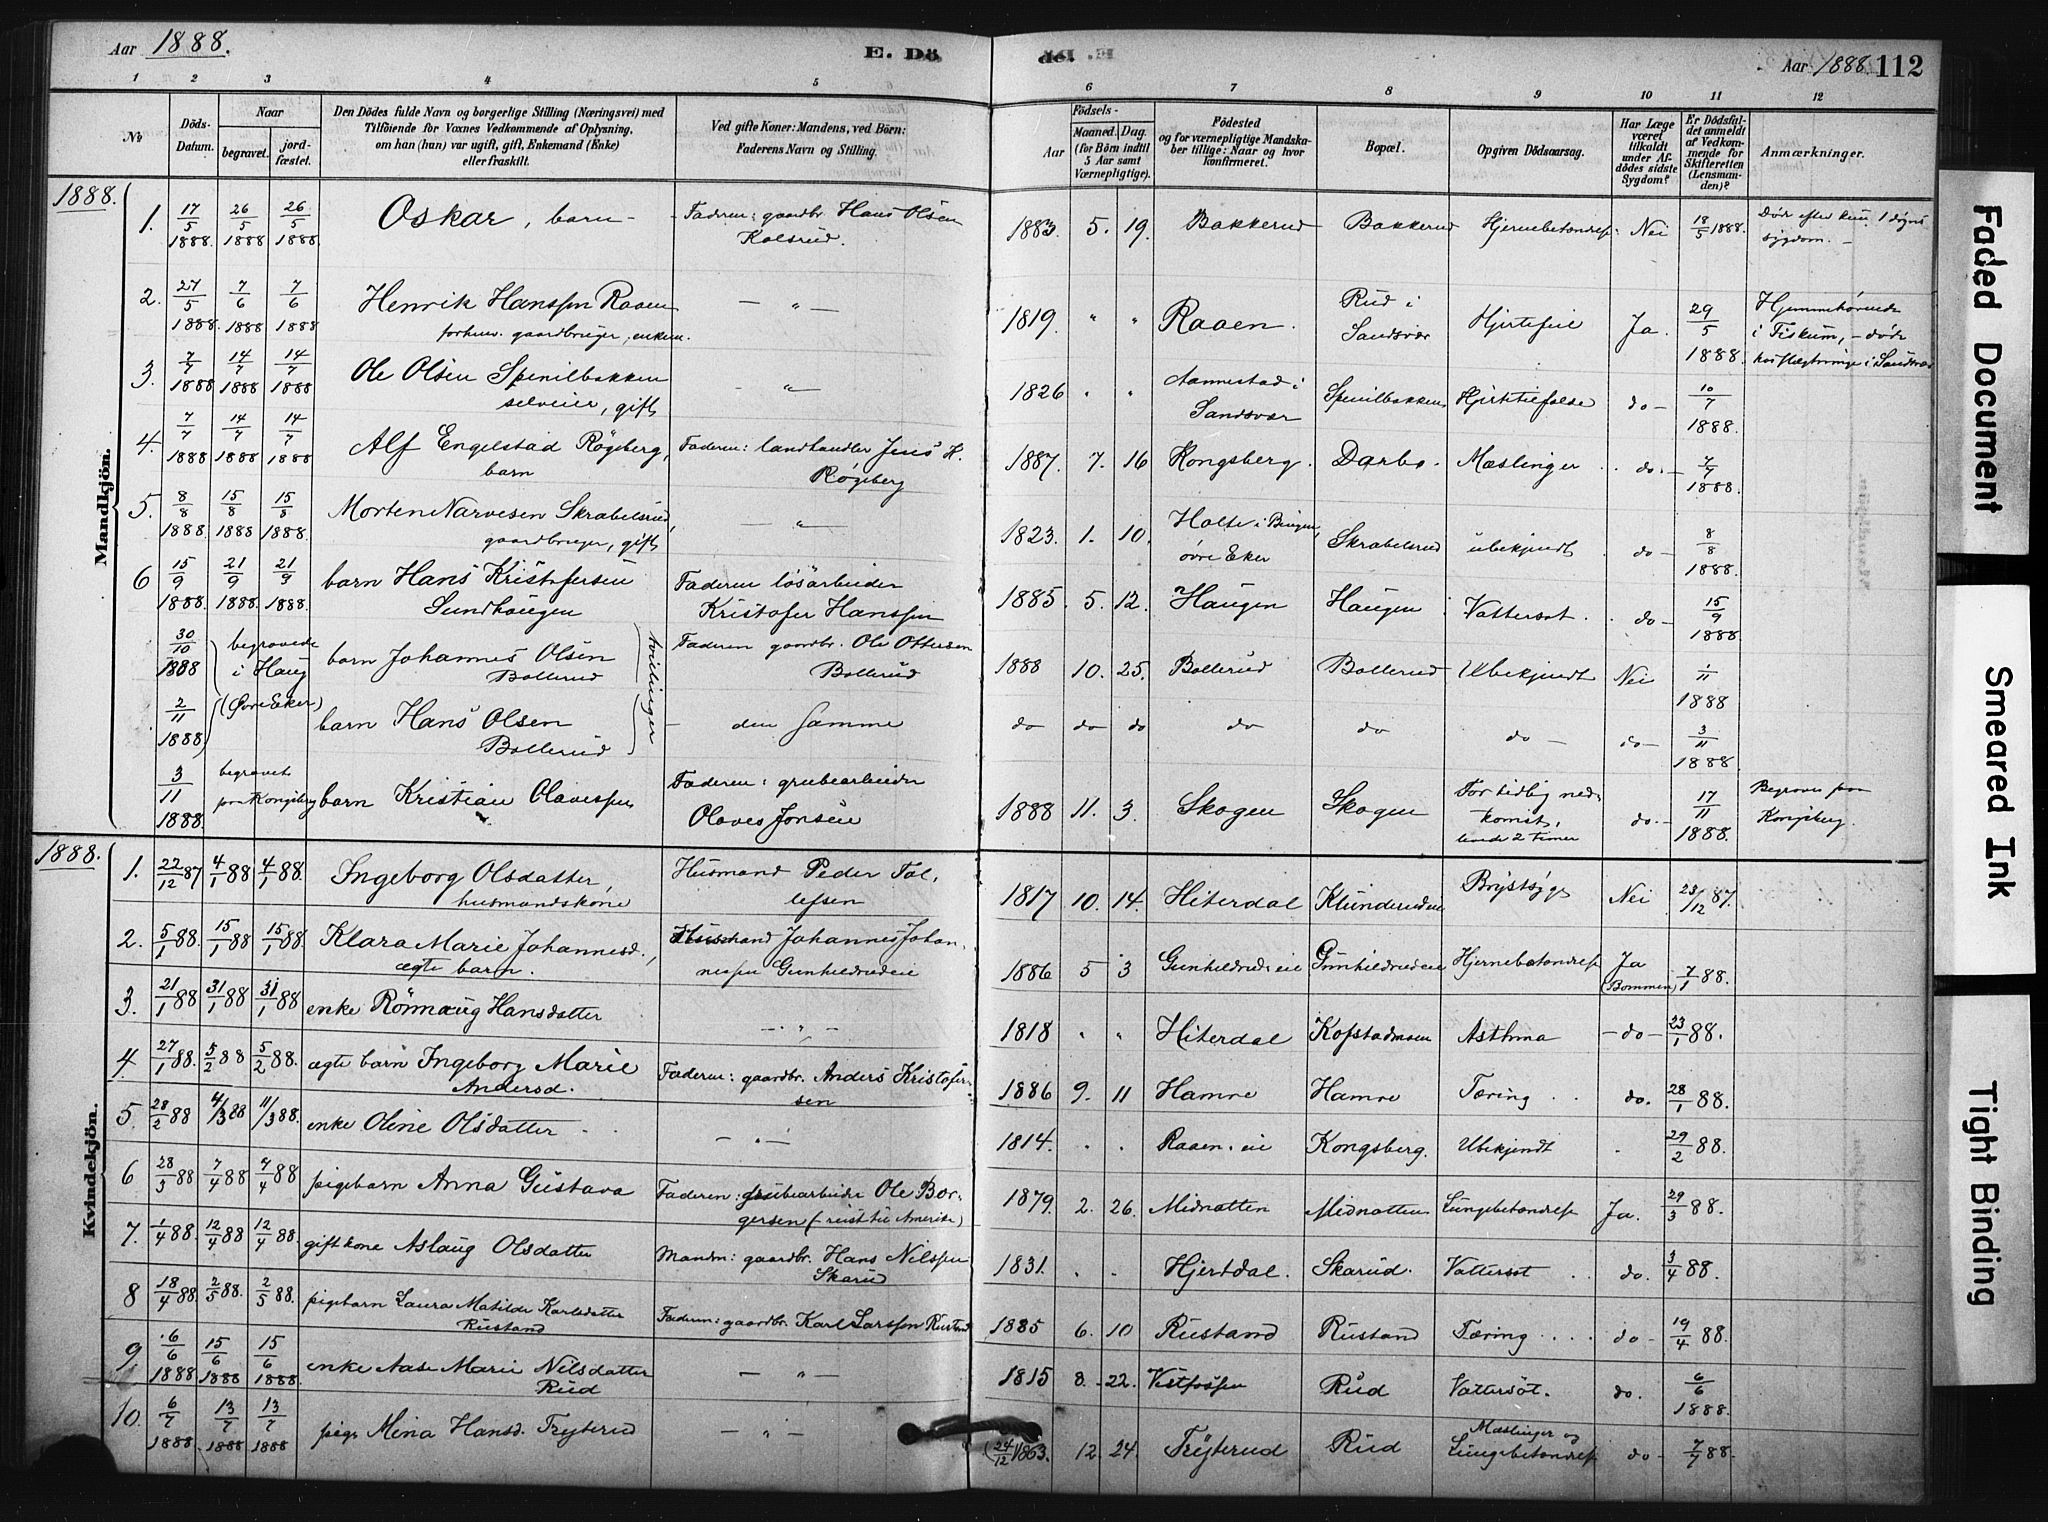 Aar 1888. E. Dö
1 2 3 4 5
№ Döds-Datum. Naar begravet. jordfæstet. Den Dödes fulde Navn og borgerlige Stilling (Næringsvei) med Tilföiende for Voxnes Vedkommende af Oplysning, om han (hun) var ugift, gift, Enkemand (Enke) eller fraskilt. Ved gifte Koner: Mandens, ved Börn: Faderens Navn og Stilling.
de. Aar 1888. 112
6 7 8 9 10 11 12
Födsels- Aar Maaned. Dag. (for Börn indtil 5 Aar samt Værnepligtige). Födested og for værnepligtige Mandskaber tillige: Naar og hvor konfirmeret. Bopæl. Opgiven Dödsaarsag. Har Læge været tilkaldt under Afdödes sidste Sygdom? Er Dödsfaldet anmeldt af Vedkommende for Skifteretten (Lensmanden)? Anmærkninger.
1888.
Mandkjön.
1. 17/5 1888. 26/5 1888 26/5 1888. Oskar, barn - Faderen: gaardbr. Hans Olsen Kolsrud. 1883. 5. 19. Bakkerud Bakkerud Hjernebetændelse Nei 18/5 1888. Död efter kun 1 døgns sygdom. -
2. 27/5 1888. 7/6 1888 7/6 1888. Henrik Hanssen Raaen forhenv. gaardbruger, enkem. - " - 1819. " " Raaen. Rud i Sandsvær Hjertefeil Ja. 29/5 1888. Hjemmehørende i Fiskum, - døde hos slægtninge i Sandsvær
3. 7/7 1888 14/7 1888 14/7 1888 Ole Olsen Spenilbakken selveier, gift - " - 1826 " " Aannestad i Sandsvær Spenilbakken Hjerte do - 10/7 1888.
4. 7/7 1888 14/7 1888 14/7 1888 Alf Engelstad Røgeberg, barn Faderen: landhandler Jens H. Røgeberg 1887. 7. 16 Kongsberg. Darbo. Mæslinger do - 7/7 1888.
5. 8/8 1888. 15/8 1888 15/8 1888. Morten Narvesen Skrabelsrud, gaardbruger, gift - " - 1823. 1. 10. Holte i Bingen, øvre Eker Skrabelsrud ubekjendt do - 8/8 1888.
6 15/9 1888. 21/9 1888. 21/9 1888. barn Hans Kristofersen Sundhaugen Faderen løsarbeider Kristofer Hanssen 1885. 5. 12. Haugen Haugen Vattersot. do - 15/9 1888.
30/10 1888 begravede i Haug (Øvre Eker) barn Johannes Olsen Bollerud tvillinger Faderen gaardbr. Ole Ottersen Bollerud 1888 10. 25. Bollerud Bollerud Ubekjendt Nei 1/11 1888
2/11 1888. barn Hans Olsen Bollerud - den samme do do do do do do - do - 3/11 1888.
3/11 1888. begravet paa Kongsberg barn Kristian Olavessen Faderen: grubearbeider Olaves Jonsen 1888 11. 3. Skogen Skogen For tidlig nedkomst, levde 2 timer do. - 17/11 1888. Begraves paa Kongsberg.
1888.
Kvindekjön.
1. 22/12 87 4/1 88 4/1 88. Ingeborg Olsdatter, husmandskone Husmand Peder Tollefsen 1817 10. 14. Hiterdal Klunderudeie Brystsyge Nei 23/12 87.
2. 5/1 88. 15/1 88 15/1 88. Klara Marie Johannesd., ægte barn. Husmand Johannes Johannessen Gunhildrudeie 1886 5 3 Gunhildrudseie Gunhildrudeie Hjernebetændelse Ja (Bommen) 7/1 88.
3. 21/1 88 31/1 88 31/1 88 enke Rönnaug Hansdatter - " - 1818 " " Hiterdal Kopstadmoen Asthma - do - 23/1 88.
4. 27/1 88. 5/2 88 5/2 88. ægte barn Ingeborg Marie Andersd. Faderen: gaardbr. Anders Kristofersen 1886 9. 11 Hamre Hamre Tæring do. 28/1 88.
5. 28/2 88 4/3 88 11/3 88. enke Oline Olsdatter - " - 1814. " " Raaen eie Kongsberg. Ubekjendt 29/2 88.
6 28/3 88 7/4 88 7/4 88 pigebarn Anna Gustava Faderen: grubearbeider Ole Borgersen (reist til Amerika) 1879. 2. 26. Midnatten Midnatten Lungebetændelse Ja. 29/3 88.
7. 1/4 88. 12/4 88 12/4 88. gift kone Aslaug Olsdatter Manden: gaardbr. Hans Nilssen Skarud 1831. " " Hjertdal. Skarud. Vattersot do. 3/4 88.
8 18/4 88. 2/5 88. 2/5 88. pigebarn Laura Matilde Karlsdatter Rustand Faderen: gaardbr. Karl Larssen Rustand 1885 6. 10 Rustand Rustand Tæring do - 19/4 88.
9. 6/6 1888 15/6 1888 15/6 1888. enke Aase Marie Nilsdatter Rud - " - 1815 8. 22. Vestfossen Rud Vattersöt. do. 6/6 1888.
10. 6/7 1888. 13/7 1888 13/7 1888 pige Mina Hansd. Tryterud - " - (24/12 1863. 12. 24. Tryterud Rud Mæslinger og Lungebetændelse do - 7/7 88.
Faded Document
Smeared Ink
Tight Binding